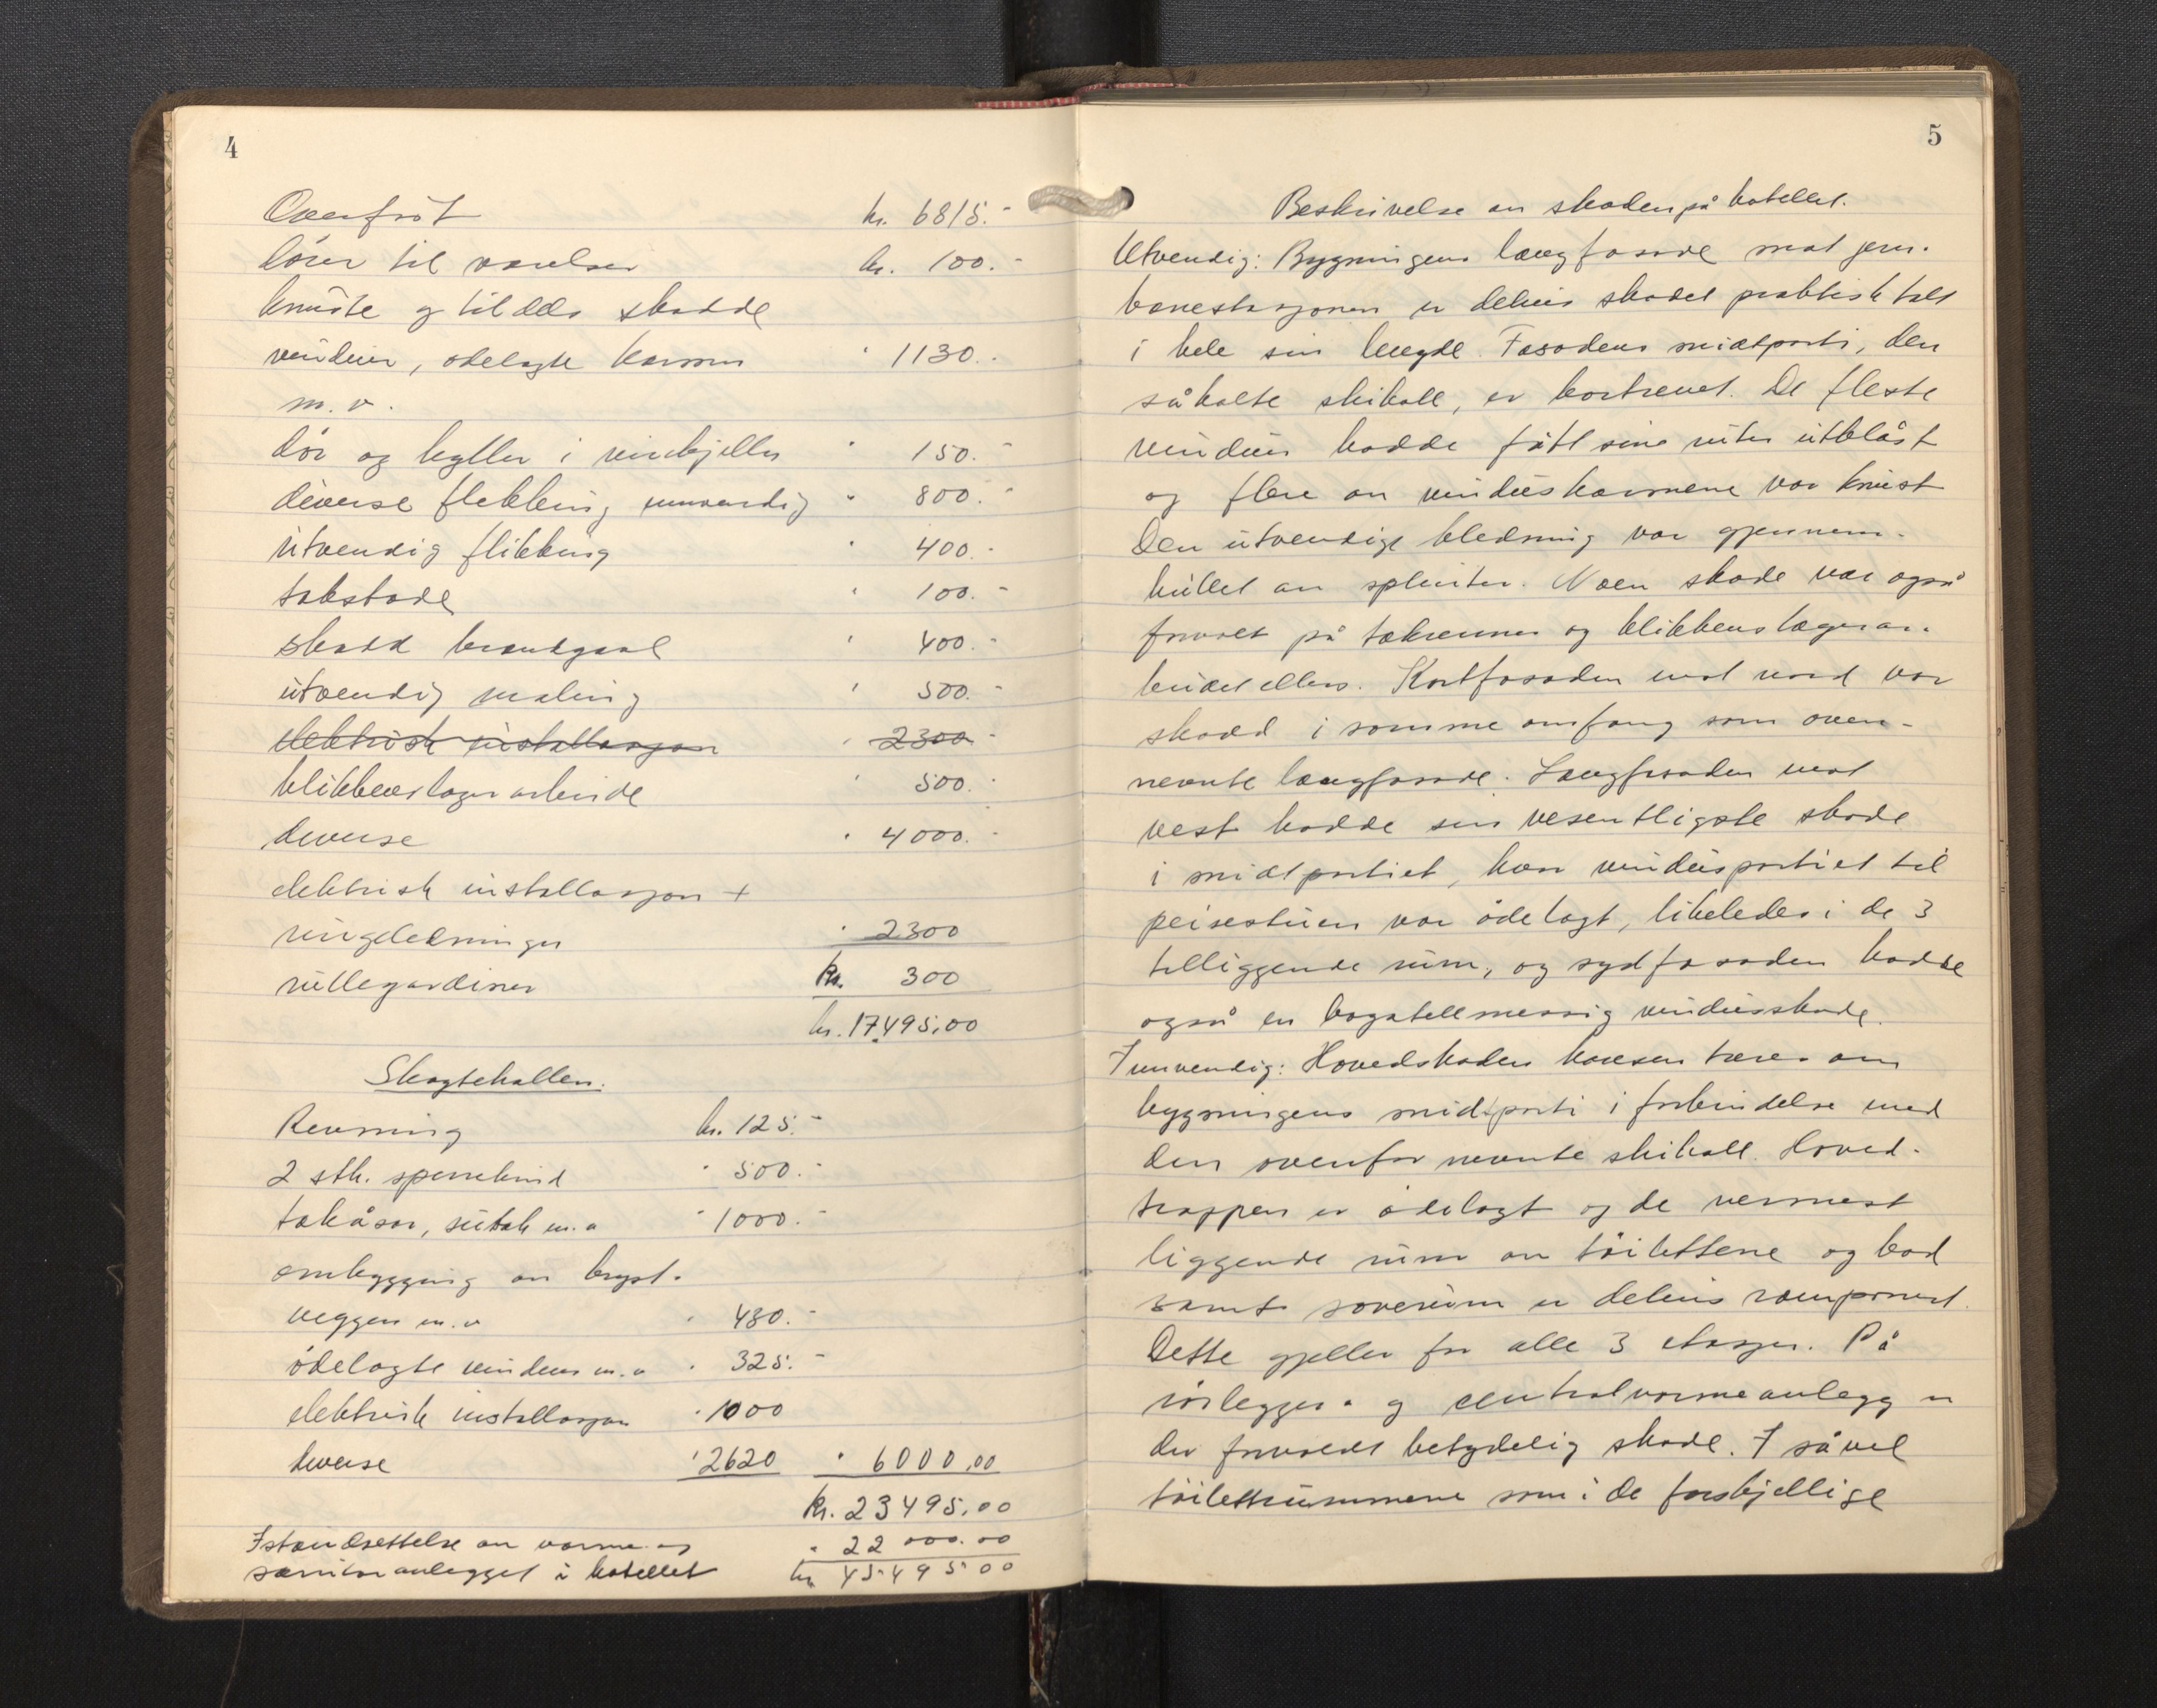 4
Overført kr. 6815.-
dører til værelser kr. 100.-
knuste og til dels skadde
vinduer, ødelagte karmer " 1130.-
m.v.
dør og hyller i vinkjeller " 150.-
diverse flekking innvendig " 800.-
utvendig flikking " 400.-
takskade " 100.-
skadd branngavl " 400.-
utvendig maling " 500.-
elektrisk installasjon " 2300 -
blikkenslagerarbeide " 500.-
diverse " 4000.-
elektrisk installasjon +
ringeledninger " 2300
rullegardiner kr. 300
kr. 17495,00
Skogtehallen.
Revning kr. 125.-
2 stk. sperrebind " 500.-
takåser, sutak m.v " 1000.-
ombygging av bryst-
veggen m.v " 430.-
ødelagte vinduer m.v " 325.-
elektrisk installasjon " 1000
diverse " 2620 " 6000,00
kr. 23495,00
Istandsettelse av varme- og " 22 000.00
sanitæranlegget i hotellet kr 45495 00
5
Beskrivelse av skaden på hotellet.
Utvendig: Bygningens langfasade mot jern-
banestasjonen er delvis skadet praktisk talt
i hele sin lengde. Fasadens midtparti, den
såkalte skihall, er bortrevet. De fleste
vinduer hadde fått sine ruter utblåst
og flere av vinduskarmene var knust
Den utvendige kledning var gjennem-
hullet av splinter. Noen skade var også
forvoldt på takrenner og blikkenslagerar-
beidet ellers. Kortfasaden mot nord var
skadd i samme omfang som oven-
nevnte langfasade. Langfasaden mot
vest hadde sin vesentligste skade
i midtpartiet, hvor vinduspartiet til
peisestuen var ødelagt, likeledes i de 3
tilliggende rum, og sydfasaden hadde
også en bagatellmessig vindusskade.
Innvendig: Hovedskaden konsentreres om
bygningens midtparti i forbindelse med
den ovenfor nevnte skihall. Hoved-
trappen er ødelagt og de nermest
liggende rum av toilettene og bad
samt soverum er delvis ramponert.
Dette gjeller for alle 3 etasjer. På
rørlegger- og centralvarmeanlegg er
der forvoldt betydelig skade. I såvel
toilettrummene som i de forskjellige